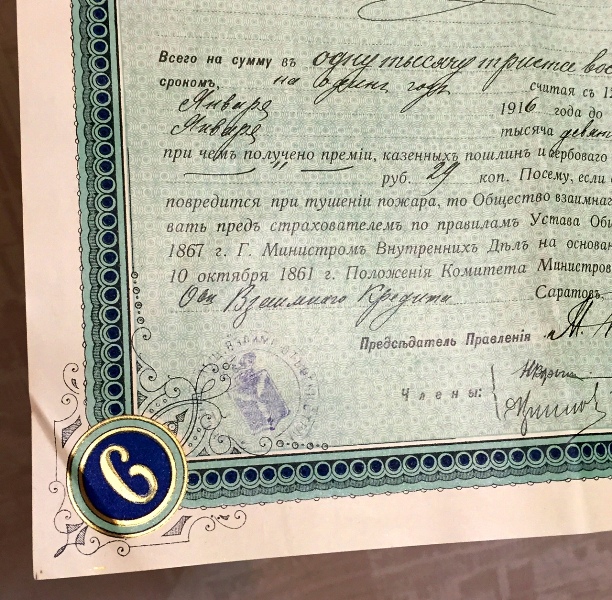 Всего на сумму въ одну тысячу триста вос
срокомъ, на одинъ годъ считая съ 12
Января 1916 года до
Января тысяча девят
при чемъ получено преміи, казенныхъ пошлинъ и гербоваго
руб. 29 коп. Посему, если
повредится при тушеніи пожара, то Общество взаимнаг
вать предъ страхователемъ по правиламъ Устава Общ
1867 г. Г. Министромъ Внутреннихъ Дѣлъ на основан
10 октября 1861 г. Положенія Комитета Министров
Взаимнаго Кредита Саратовъ
Предсѣдатель Правленія
Члены:
С